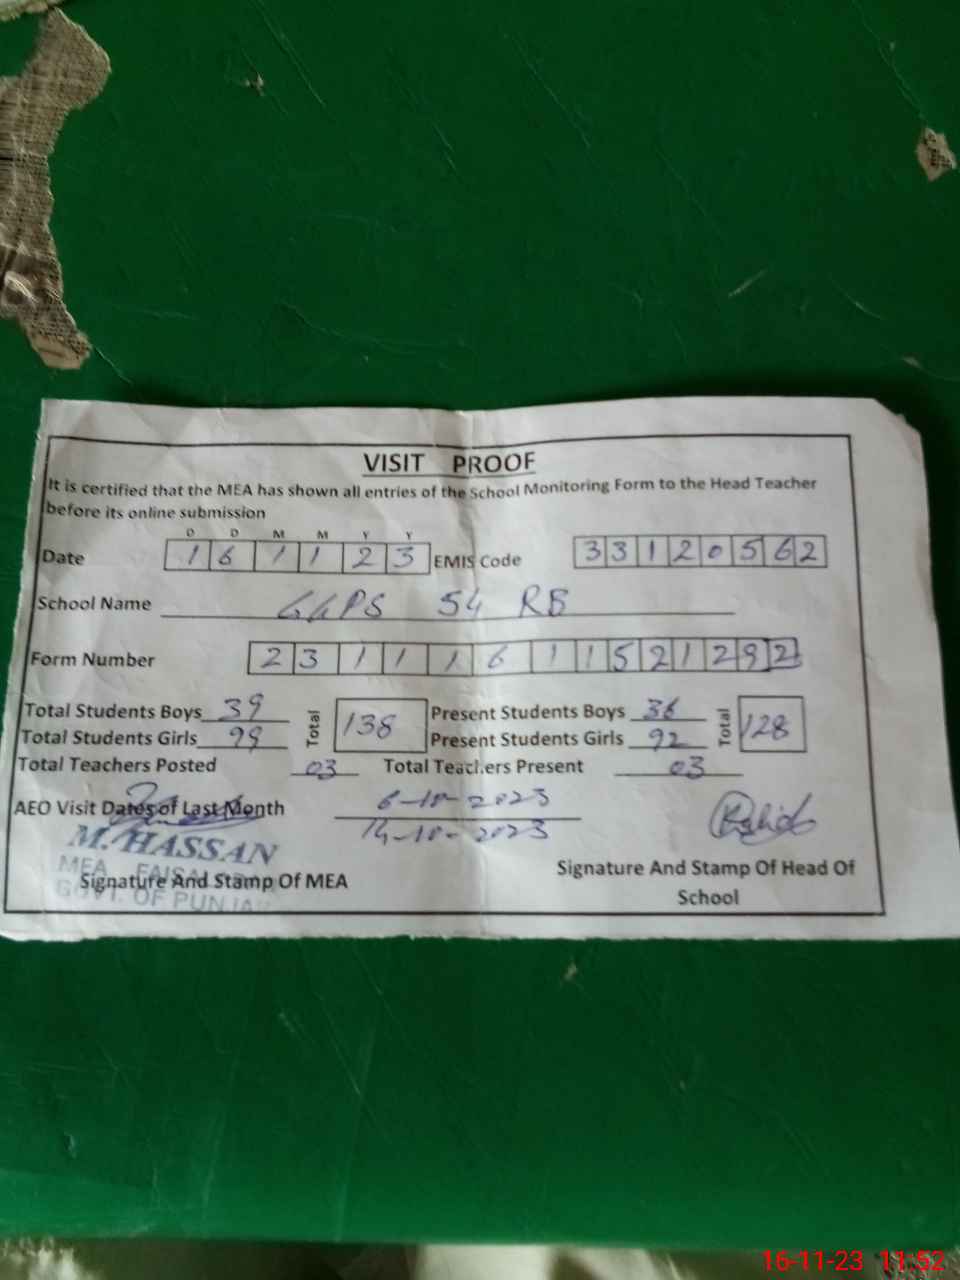 VISIT PROOF
It is certified that the MEA has shown all entries of the School Monitoring Form to the Head Teacher
before its online submission
D D M M Y Y
Date 1 6 1 1 2 3 EMIS Code 3 3 1 2 0 5 6 2
School Name GGPS 54 RB
Form Number 2 3 1 1 1 6 1 1 5 2 1 2 9 2
Total Students Boys 39 Total 138 Present Students Boys 36 Total 128
Total Students Girls 99 Present Students Girls 92
Total Teachers Posted 03 Total Teachers Present 03
AEO Visit Dates of Last Month 6-10-2023
14-10-2023
M. HASSAN
MEA
Signature And Stamp Of MEA
GOVT. OF PUNJA
Signature And Stamp Of Head Of
School
16-11-23 11:52